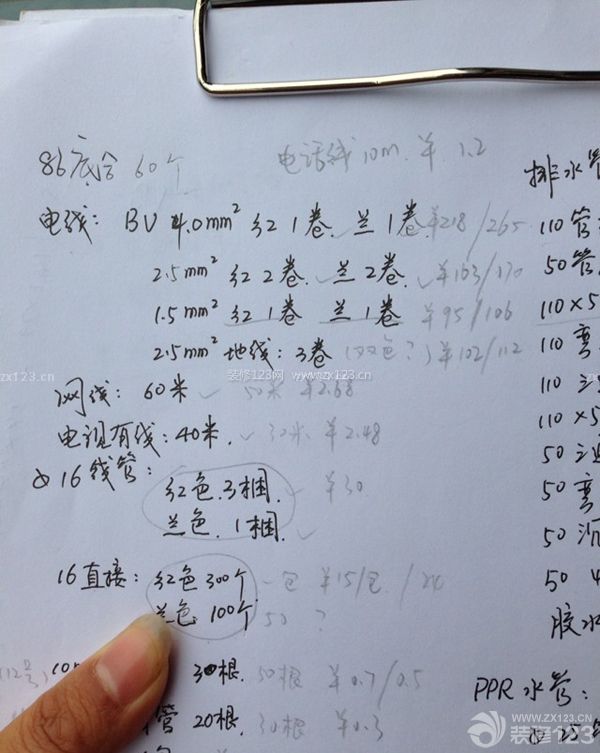 86底合 60个 电话线 10m. ¥ 1.2
电线: BV 4.0mm² 红1卷. 兰1卷. ¥218/265
2.5mm² 红2卷. 兰2卷. ¥163/170
1.5mm² 红1卷 兰1卷 ¥95/106
2.5mm² 地线: 3卷 (双色?) ¥102/112
网线: 60米 50米 ¥2.68
电视有线: 40米. 30米 ¥2.48
16线管:
红色.3梱. ¥30
兰色.1梱.
16直接: 红色 300个 一包 ¥15/包
兰色 100个 50 ?
30根. 50根 ¥0.7/0.5
管 20根. 30根 ¥0.3
排水管
110管
50管
110×5
110 弯
110 三通
110×5
50 三通
50 弯
50 沉
50
胶水
PPR 水管:
装修123网 www.zx123.cn
zx123.cn
www.zx123.cn
装修123